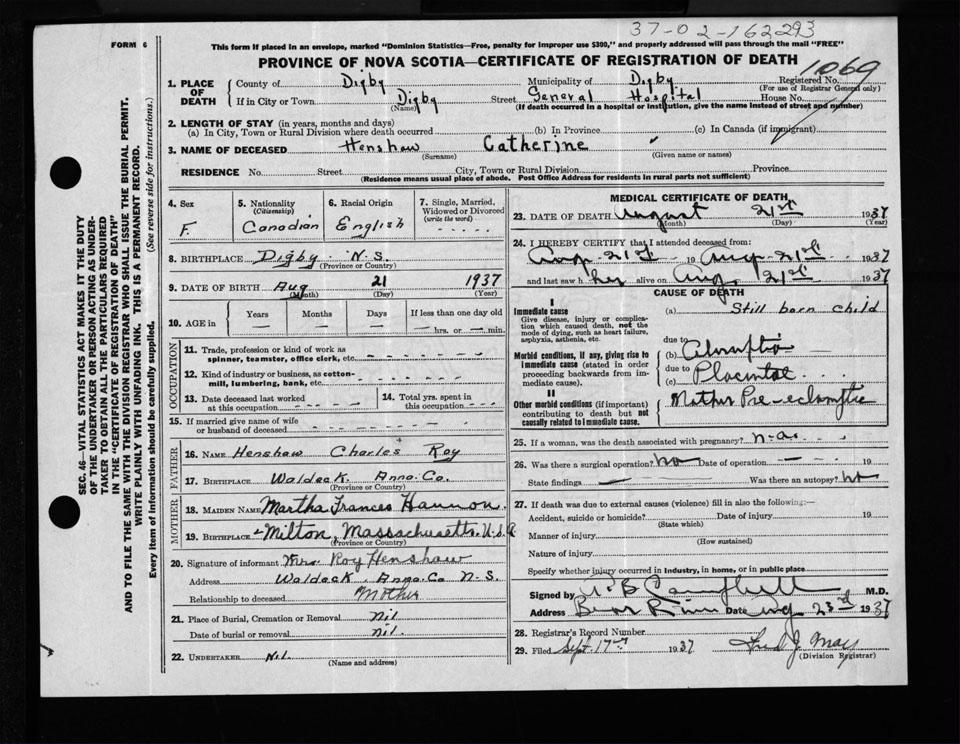 37-02-162293
FORM 6
This form if placed in an envelope, marked "Dominion Statistics—Free, penalty for improper use $300," and properly addressed will pass through the mail "FREE"
PROVINCE OF NOVA SCOTIA—CERTIFICATE OF REGISTRATION OF DEATH
1. PLACE OF DEATH County of Digby Municipality of Digby Registered No. 1069
(For use of Registrar General only)
If in City or Town Digby Street General Hospital House No.
(Name) (If death occurred in a hospital or institution, give the name instead of street and number)
2. LENGTH OF STAY (in years, months and days)
(a) In City, Town or Rural Division where death occurred (b) In Province (c) In Canada (if immigrant)
3. NAME OF DECEASED Henshaw Catherine
(Surname) (Given name or names)
RESIDENCE No. Street City, Town or Rural Division Province
(Residence means usual place of abode. Post Office Address for residents in rural parts not sufficient)
SEC. 46—VITAL STATISTICS ACT MAKES IT THE DUTY
OF THE UNDERTAKER OR PERSON ACTING AS UNDER-
TAKER TO OBTAIN ALL THE PARTICULARS REQUIRED
IN THE "CERTIFICATE OF REGISTRATION OF DEATH"
AND TO FILE THE SAME WITH THE DIVISION REGISTRAR WHO SHALL ISSUE THE BURIAL PERMIT.
WRITE PLAINLY WITH UNFADING INK. THIS IS A PERMANENT RECORD.
Every item of information should be carefully supplied. (See reverse side for instructions.)
4. Sex
F.
5. Nationality
(Citizenship)
Canadian
6. Racial Origin
English
7. Single, Married,
Widowed or Divorced
(write the word)
8. BIRTHPLACE Digby N.S.
(Province or Country)
9. DATE OF BIRTH Aug 21 1937
(Month) (Day) (Year)
10. AGE in Years Months Days If less than one day old
— — — — hrs. or — min.
OCCUPATION
11. Trade, profession or kind of work as
spinner, teamster, office clerk, etc.
12. Kind of industry or business, as cotton-
mill, lumbering, bank, etc.
13. Date deceased last worked
at this occupation
14. Total yrs. spent in
this occupation
15. If married give name of wife
or husband of deceased
FATHER
16. NAME Henshaw Charles Roy
17. BIRTHPLACE Waldeck Anna. Co.
(Province or Country)
MOTHER
18. MAIDEN NAME Martha Frances Hannon
19. BIRTHPLACE Milton, Massachusetts. U.S.A
(Province or Country)
20. Signature of informant Mrs. Roy Henshaw
Address Waldeck Anna. Co N.S.
Relationship to deceased Mother
21. Place of Burial, Cremation or Removal Nil
Date of burial or removal nil.
22. UNDERTAKER Nil.
(Name and address)
MEDICAL CERTIFICATE OF DEATH
23. DATE OF DEATH August 21st 1937
(Month) (Day) (Year)
24. I HEREBY CERTIFY that I attended deceased from:
Aug 21st 19 Aug 21st 1937
and last saw her alive on Aug. 21st 1937
CAUSE OF DEATH
I
Immediate cause
Give disease, injury or complica-
tion which caused death, not the
mode of dying, such as heart failure,
asphyxia, asthenia, etc.
(a) Still born child
due to
Morbid conditions, if any, giving rise to
immediate cause (stated in order
proceeding backwards from im-
mediate cause).
(b) Abruptio
due to
(c) Placentae
II
Other morbid conditions (if important)
contributing to death but not
causally related to immediate cause.
Mother Pre-eclamptic
25. If a woman, was the death associated with pregnancy? n.a.
26. Was there a surgical operation? No Date of operation — 19
State findings — Was there an autopsy? No
27. If death was due to external causes (violence) fill in also the following:—
Accident, suicide or homicide? Date of injury 19
(State which)
Manner of injury
(How sustained)
Nature of injury
Specify whether injury occurred in Industry, in home, or in public place
Signed by B Campbell M.D.
Address Bear River Date Aug 23rd 1937
28. Registrar's Record Number
29. Filed Sept. 17th 1937 Fred J. May
(Division Registrar)